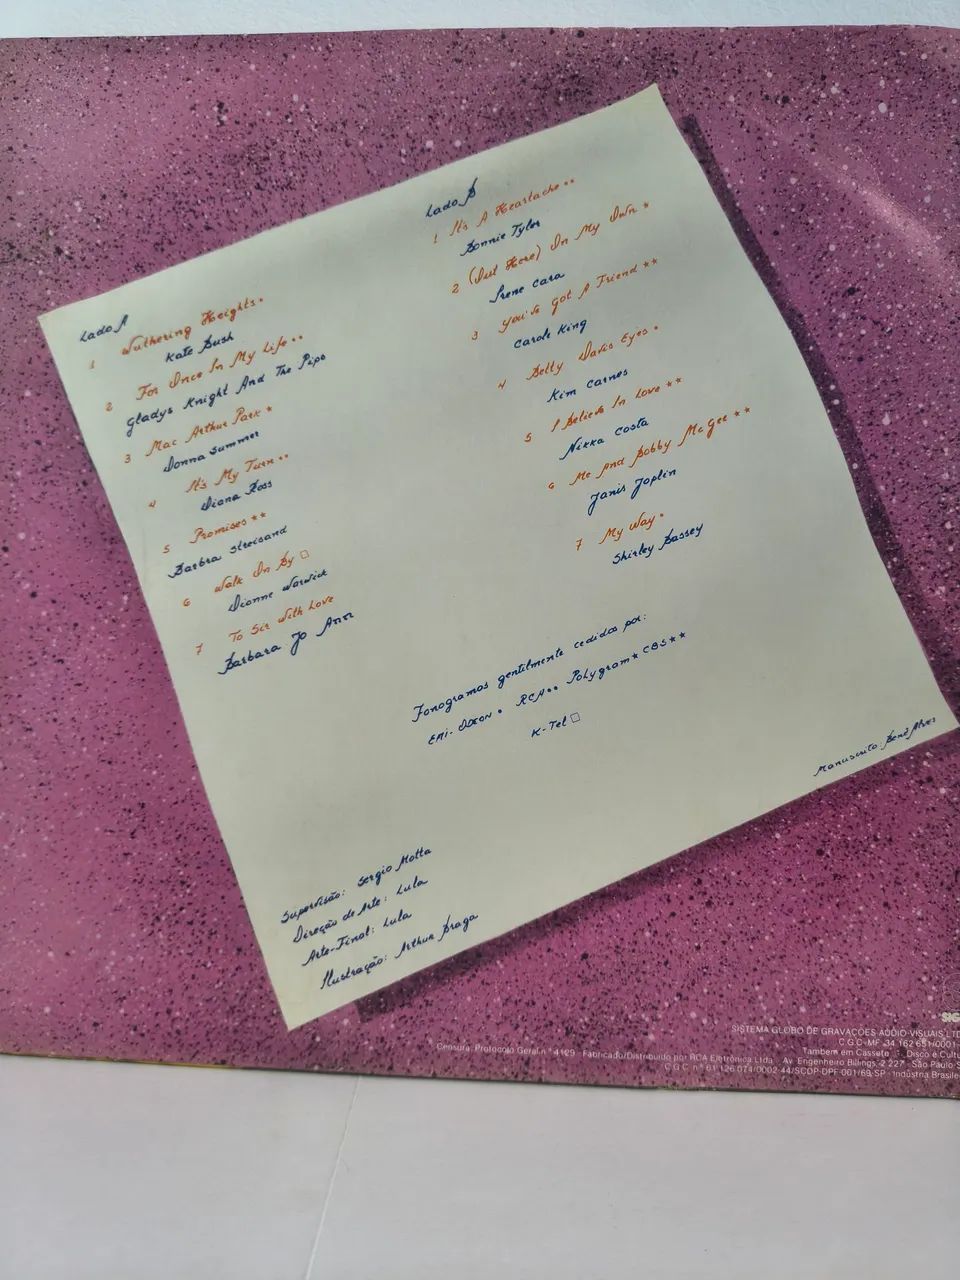 Lado A
1 Wuthering Heights •
Kate Bush
2 For Once In My Life ••
Gladys Knight And The Pips
3 Mac Arthur Park ★
Donna Summer
4 It's My Turn ••
Diana Ross
5 Promises ★★
Barbra Streisand
6 Walk On By □
Dionne Warwick
7 To Sir With Love
Barbara Jo Ann
Lado B
1 It's A Heartache ••
Bonnie Tyler
2 (Out Here) On My Own ★
Irene Cara
3 You've Got A Friend ★★
Carole King
4 Betty Davis Eyes •
Kim Carnes
5 I Believe In Love ★★
Nikka Costa
6 Me And Bobby Mc Gee ★★
Janis Joplin
7 My Way •
Shirley Bassey
Fonogramas gentilmente cedidos por:
EMI-Odeon • RCA •• Polygram ★ CBS ★★
K-Tel □
Manuscrito Benê Alves
Supervisão: Sergio Motta
Direção de Arte: Lula
Arte-Final: Lula
Ilustração: Arthur Braga
SIG
SISTEMA GLOBO DE GRAVAÇÕES AUDIO-VISUAIS LTD
C.G.C.-MF. 34.162.651/0001-
Também em Cassete Disco é Cultu
Censura: Protocolo Geral n.º 4129 - Fabricado/Distribuido por RCA Eletrônica Ltda. Av. Engenheiro Billings, 2.227 - São Paulo S
C.G.C. n.º 61.126.074/0002-44/SCDP-DPF-001/69-SP - Indústria Brasilei